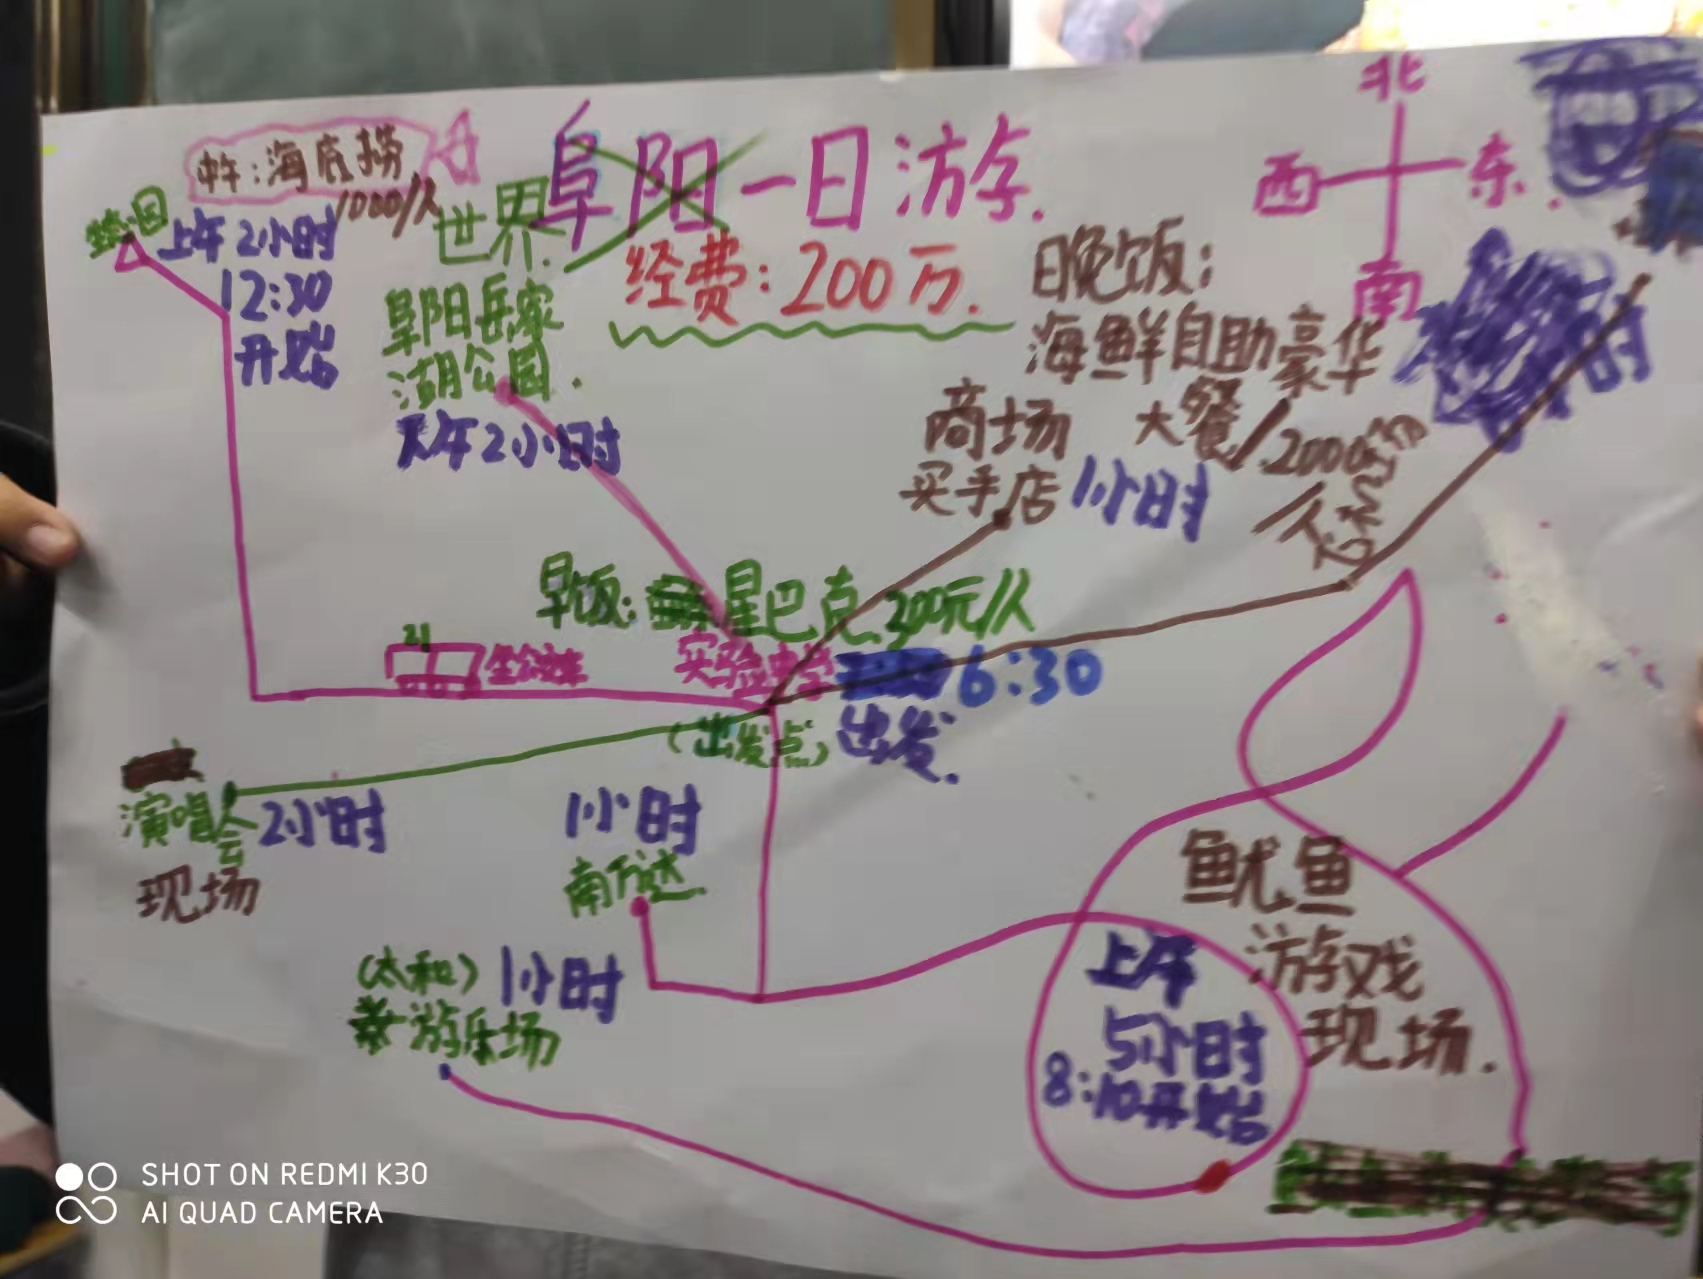 北
西 东.
南
阜阳一日游.
世界
经费：200万.
中午：海底捞
1000/人
上午2小时
12:30
开始
阜阳岳家
湖公园.
下午2小时
日晚饭：
海鲜自助豪华
大餐/2000
/人
商场
买手店 1小时
早饭： 星巴克 300元/人
实验中学 6:30
(出发点) 出发.
21
坐公交车
演唱会 2小时
现场
1小时
南万达
(太和) 1小时
游乐场
鱿鱼
游戏
现场.
上午
5小时
8:10开始
SHOT ON REDMI K30
AI QUAD CAMERA